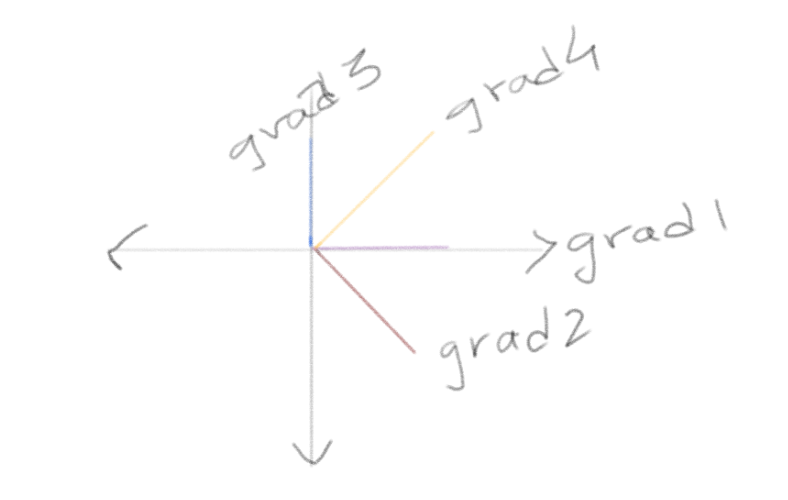 grad3
grad4
grad1
grad2